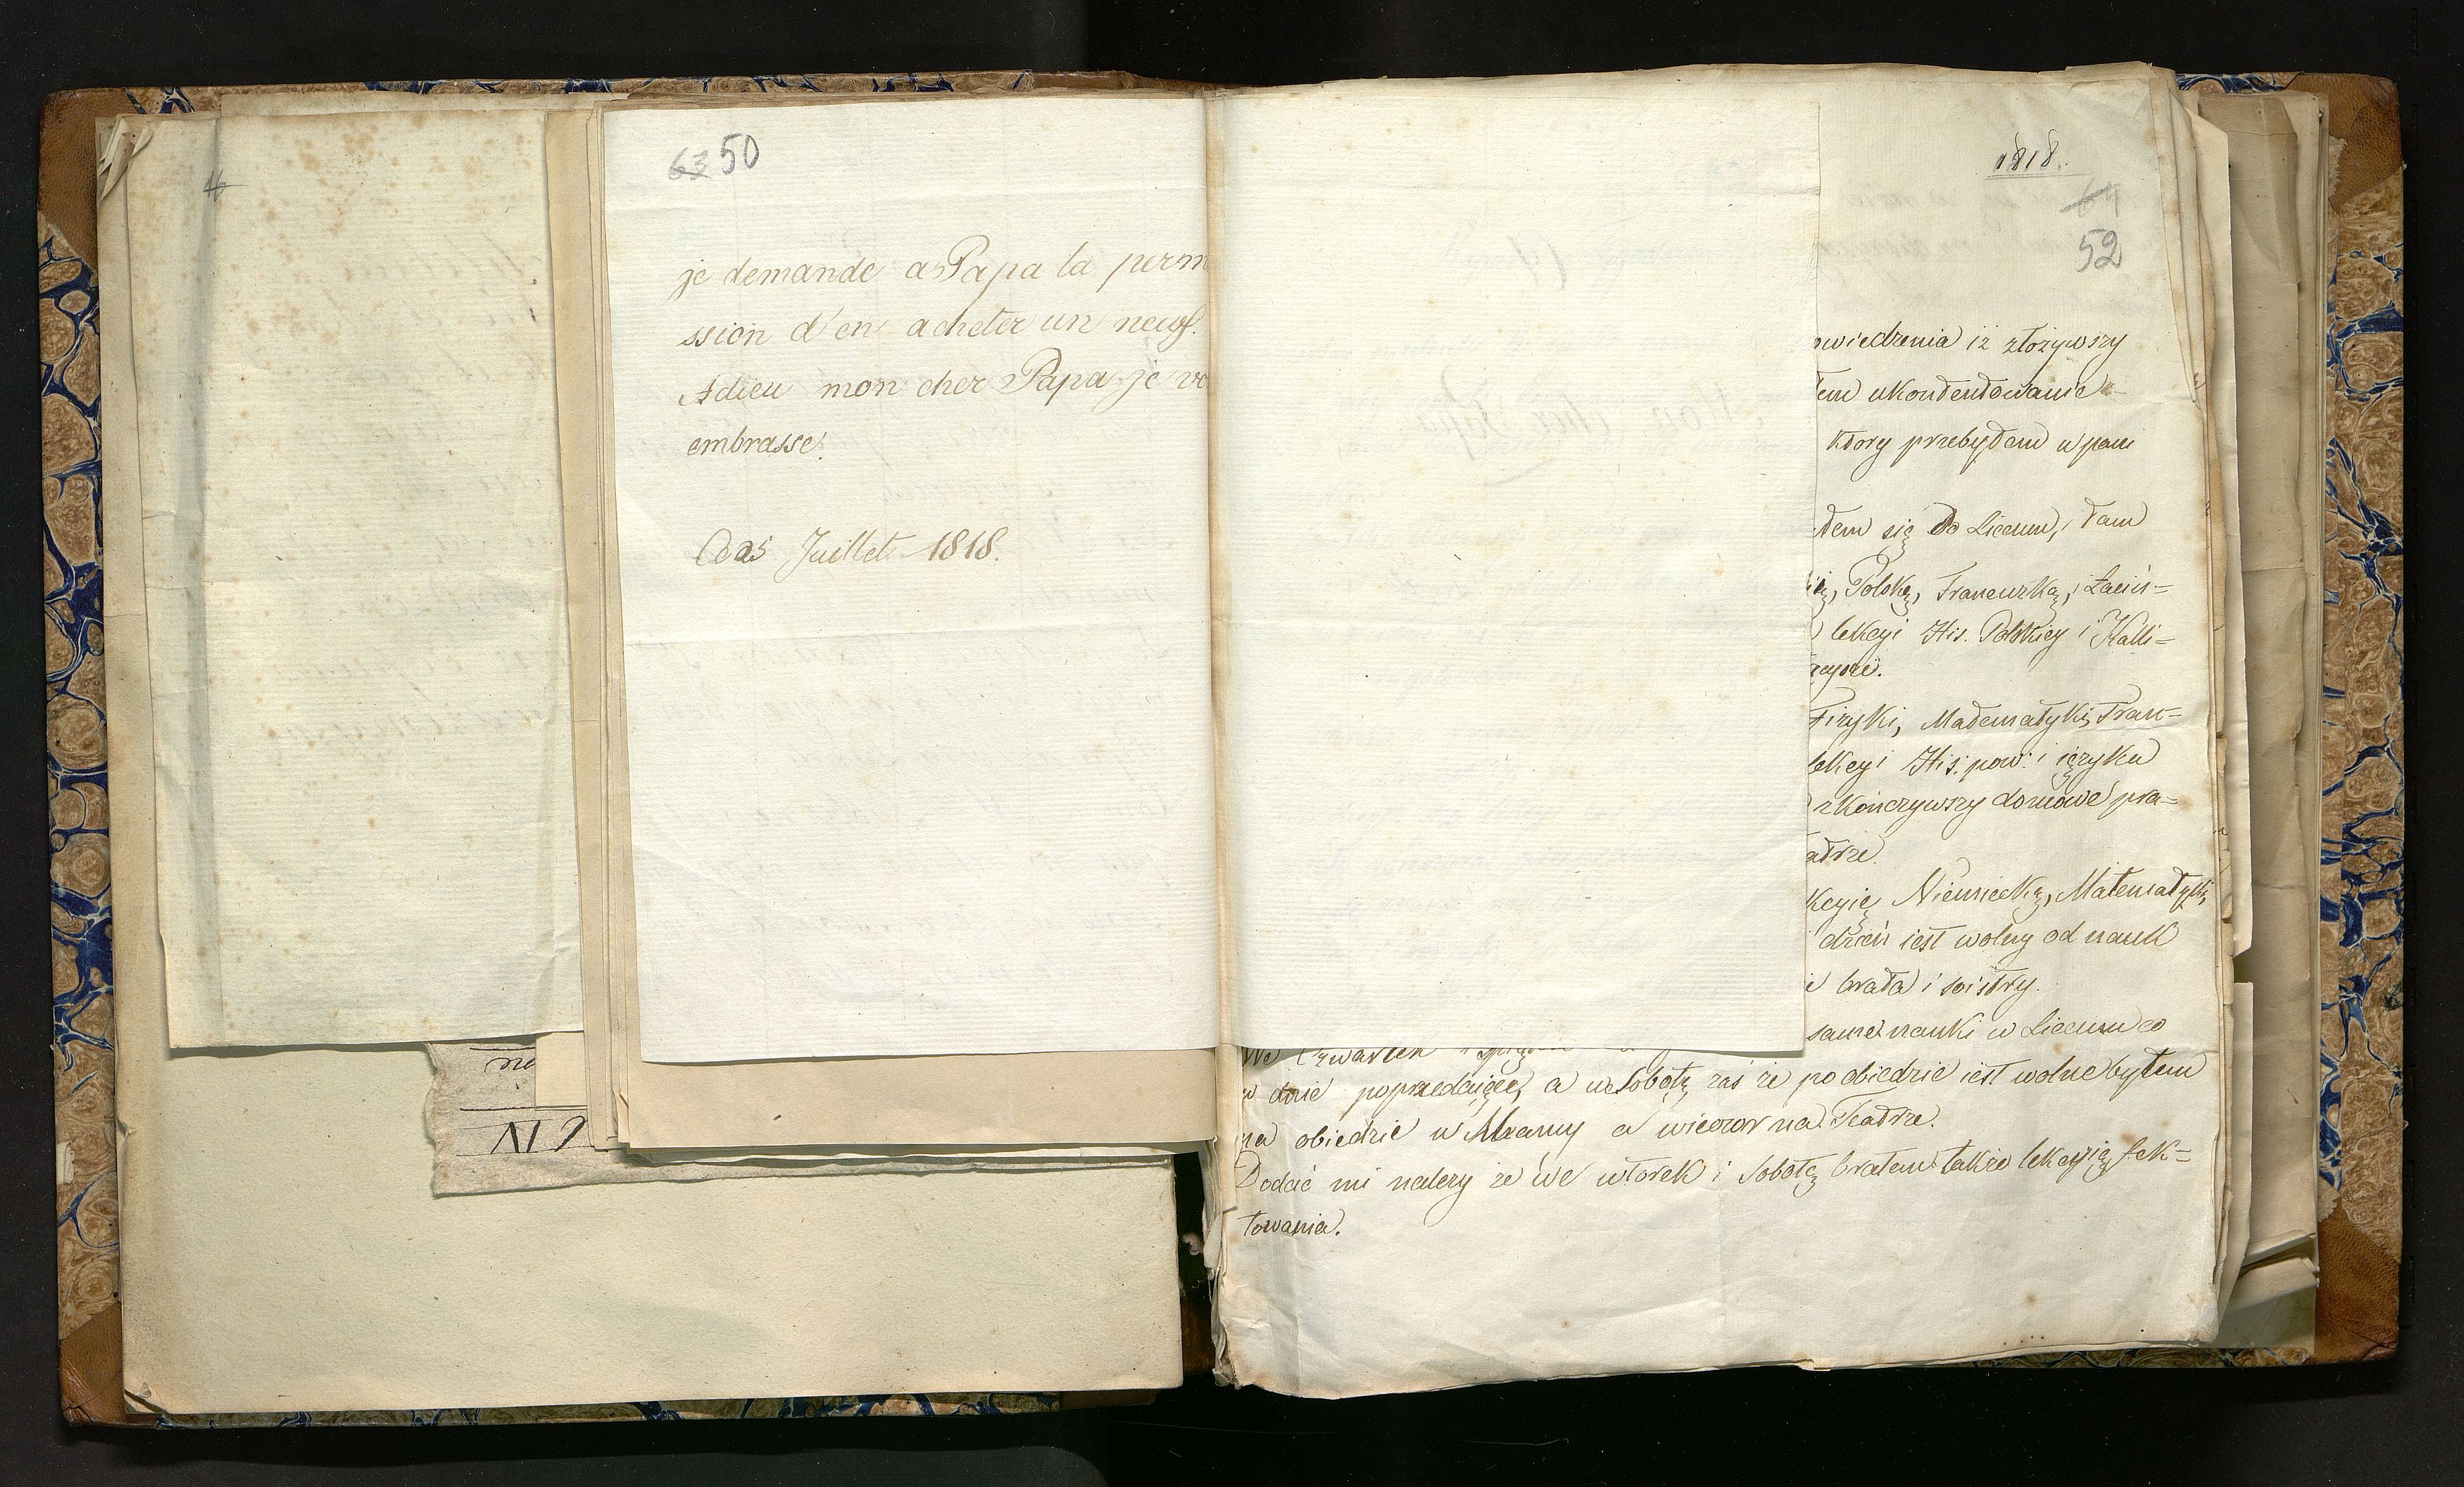 63 50
je demande a Papa la perm
ssion d'en acheter un neuf.
Adieu mon cher Papa je vo
embrasse.
Ce 25 Juillet 1818.
1818.
64
52
owiedzenia iż złożywszy
tem ukontentowanie
ktory przebyłem w pani
łem się do Liceum, i tam
Polską, Francuzką, i Łaciń=
lekcyi His. Polskiey i Kalli=
Fizyki, Matematyki, Fran=
lekcyi His. pow. i ięzyka
zkończywszy domowe pra=
atrze.
kcyię Niemiecką, Matematyki,
dzień iest wolny od nauk
brata i siostry.
same nauki w Liceum co
We Czwartek i
w dnie poprzedaiące, a w Sobotę zaś że po obiedzie iest wolne byłem
na obiedzie u Mamy a wieczor na Teatrze.
Dodać mi należy że we wtorek i Sobotę brałem także lekcyię fek=
towania.